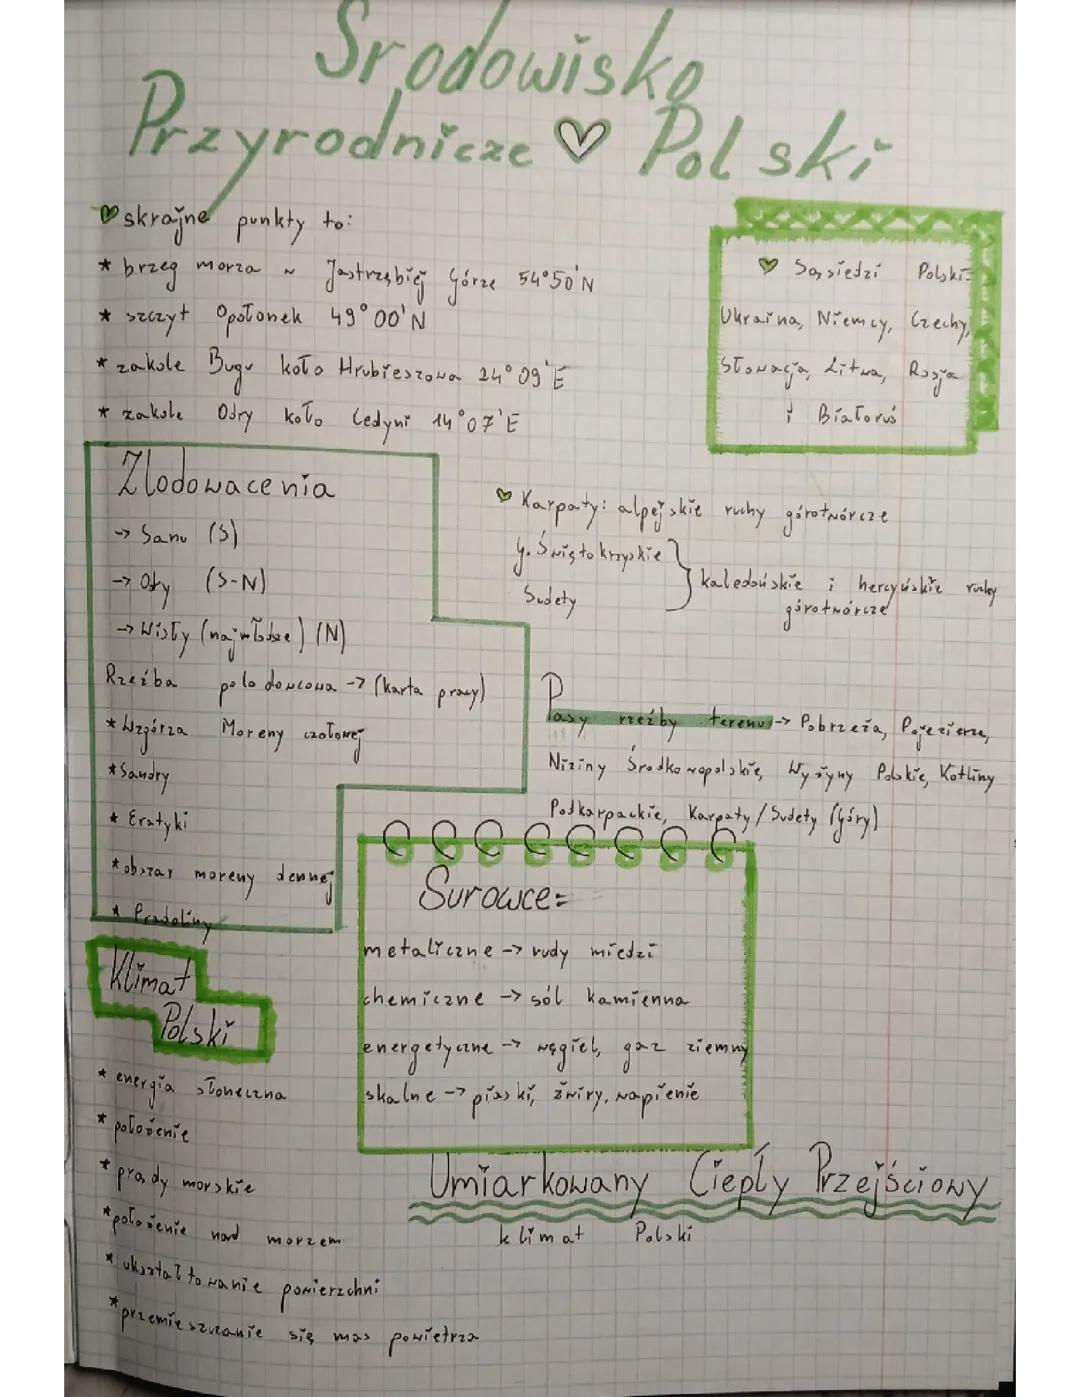 Środowisko
Przyrodnicze Polski
skrajne punkty to:
* brzeg morza ~ Jastrzębiej Górze 54°50'N
* szczyt Opołonek 49°00'N
* zakole Bugu koło Hrubieszowa 24°09'E
* zakole Odry koło Cedyni 14°07'E
Sąsiedzi Polski=
Ukraina, Niemcy, Czechy,
Słowacja, Litwa, Rosja
i Białoruś
Zlodowacenia
-> Sanu (S)
-> Odry (S-N)
-> Wisły (najmłodsze) (N)
Rzeźba polodowcowa -> (karta pracy)
* Wzgórza Moreny czołowej
* Sandry
* Eratyki
* obszar moreny dennej
* Pradoliny
Karpaty: alpejskie ruchy górotwórcze
g. Świętokrzyskie
Sudety
} kaledońskie i hercyńskie ruchy
górotwórcze
Pasy rzeźby terenu -> Pobrzeża, Pojezierza,
Niziny Środkowopolskie, Wyżyny Polskie, Kotliny
Podkarpackie, Karpaty/Sudety (góry)
Surowce=
metaliczne -> rudy miedzi
chemiczne -> sól kamienna
energetyczne -> węgiel, gaz ziemny
skalne -> piaski, żwiry, wapienie
Klimat
Polski
* energia słoneczna
* położenie
* prądy morskie
* położenie nad morzem
* ukształtowanie powierzchni
* przemieszczanie się mas powietrza
Umiarkowany Ciepły Przejściowy
klimat Polski